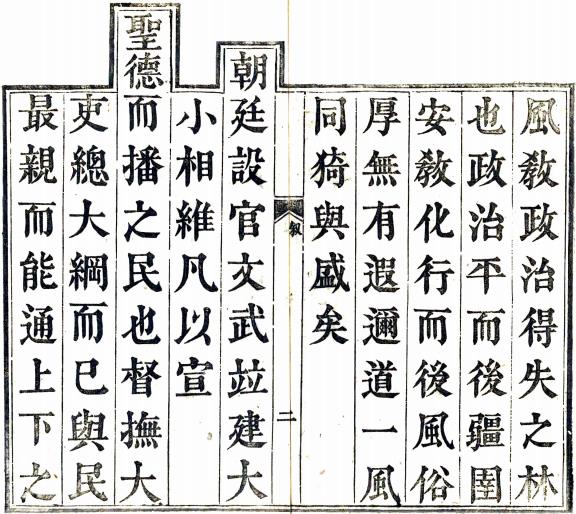 風敎政治得失之林
也政治平而後疆圉
安敎化行而後風俗
厚無有遐邇道一風
同猗與盛矣
叙
二
朝廷設官文武竝建大
小相維凡以宣
聖德而播之民也督撫大
吏總大綱而已與民
最親而能通上下之